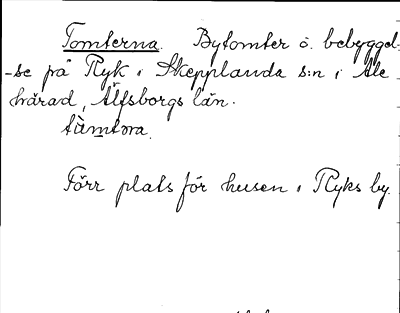 Tomterna. Bytomter o. bebyggel-
-se på Ryk i Skepplanda s:n i Ale
härad, Älfsborgs län.
tùmtœra.
Förr plats för husen i Ryks by.